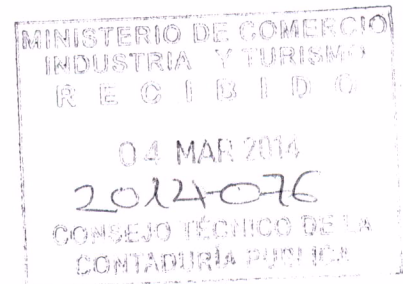 MINISTERIO DE COMERCIO
INDUSTRIA Y TURISMO
RECIBIDO
04 MAR 2014
2014-076
CONSEJO TÉCNICO DE LA
CONTADURÍA PUBLICA